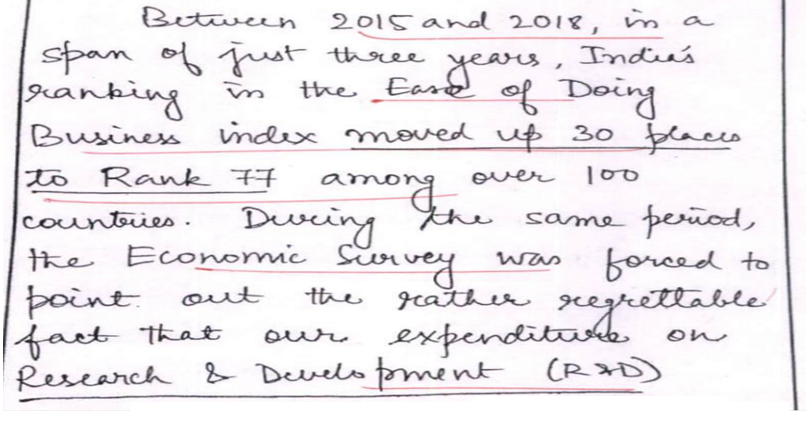 Between 2015 and 2018, in a
span of just three years, India's
ranking in the Ease of Doing
Business index moved up 30 places
to Rank 77 among over 100
countries. During the same period,
the Economic Survey was forced to
point out the rather regrettable
fact that our expenditure on
Research & Development (R&D)